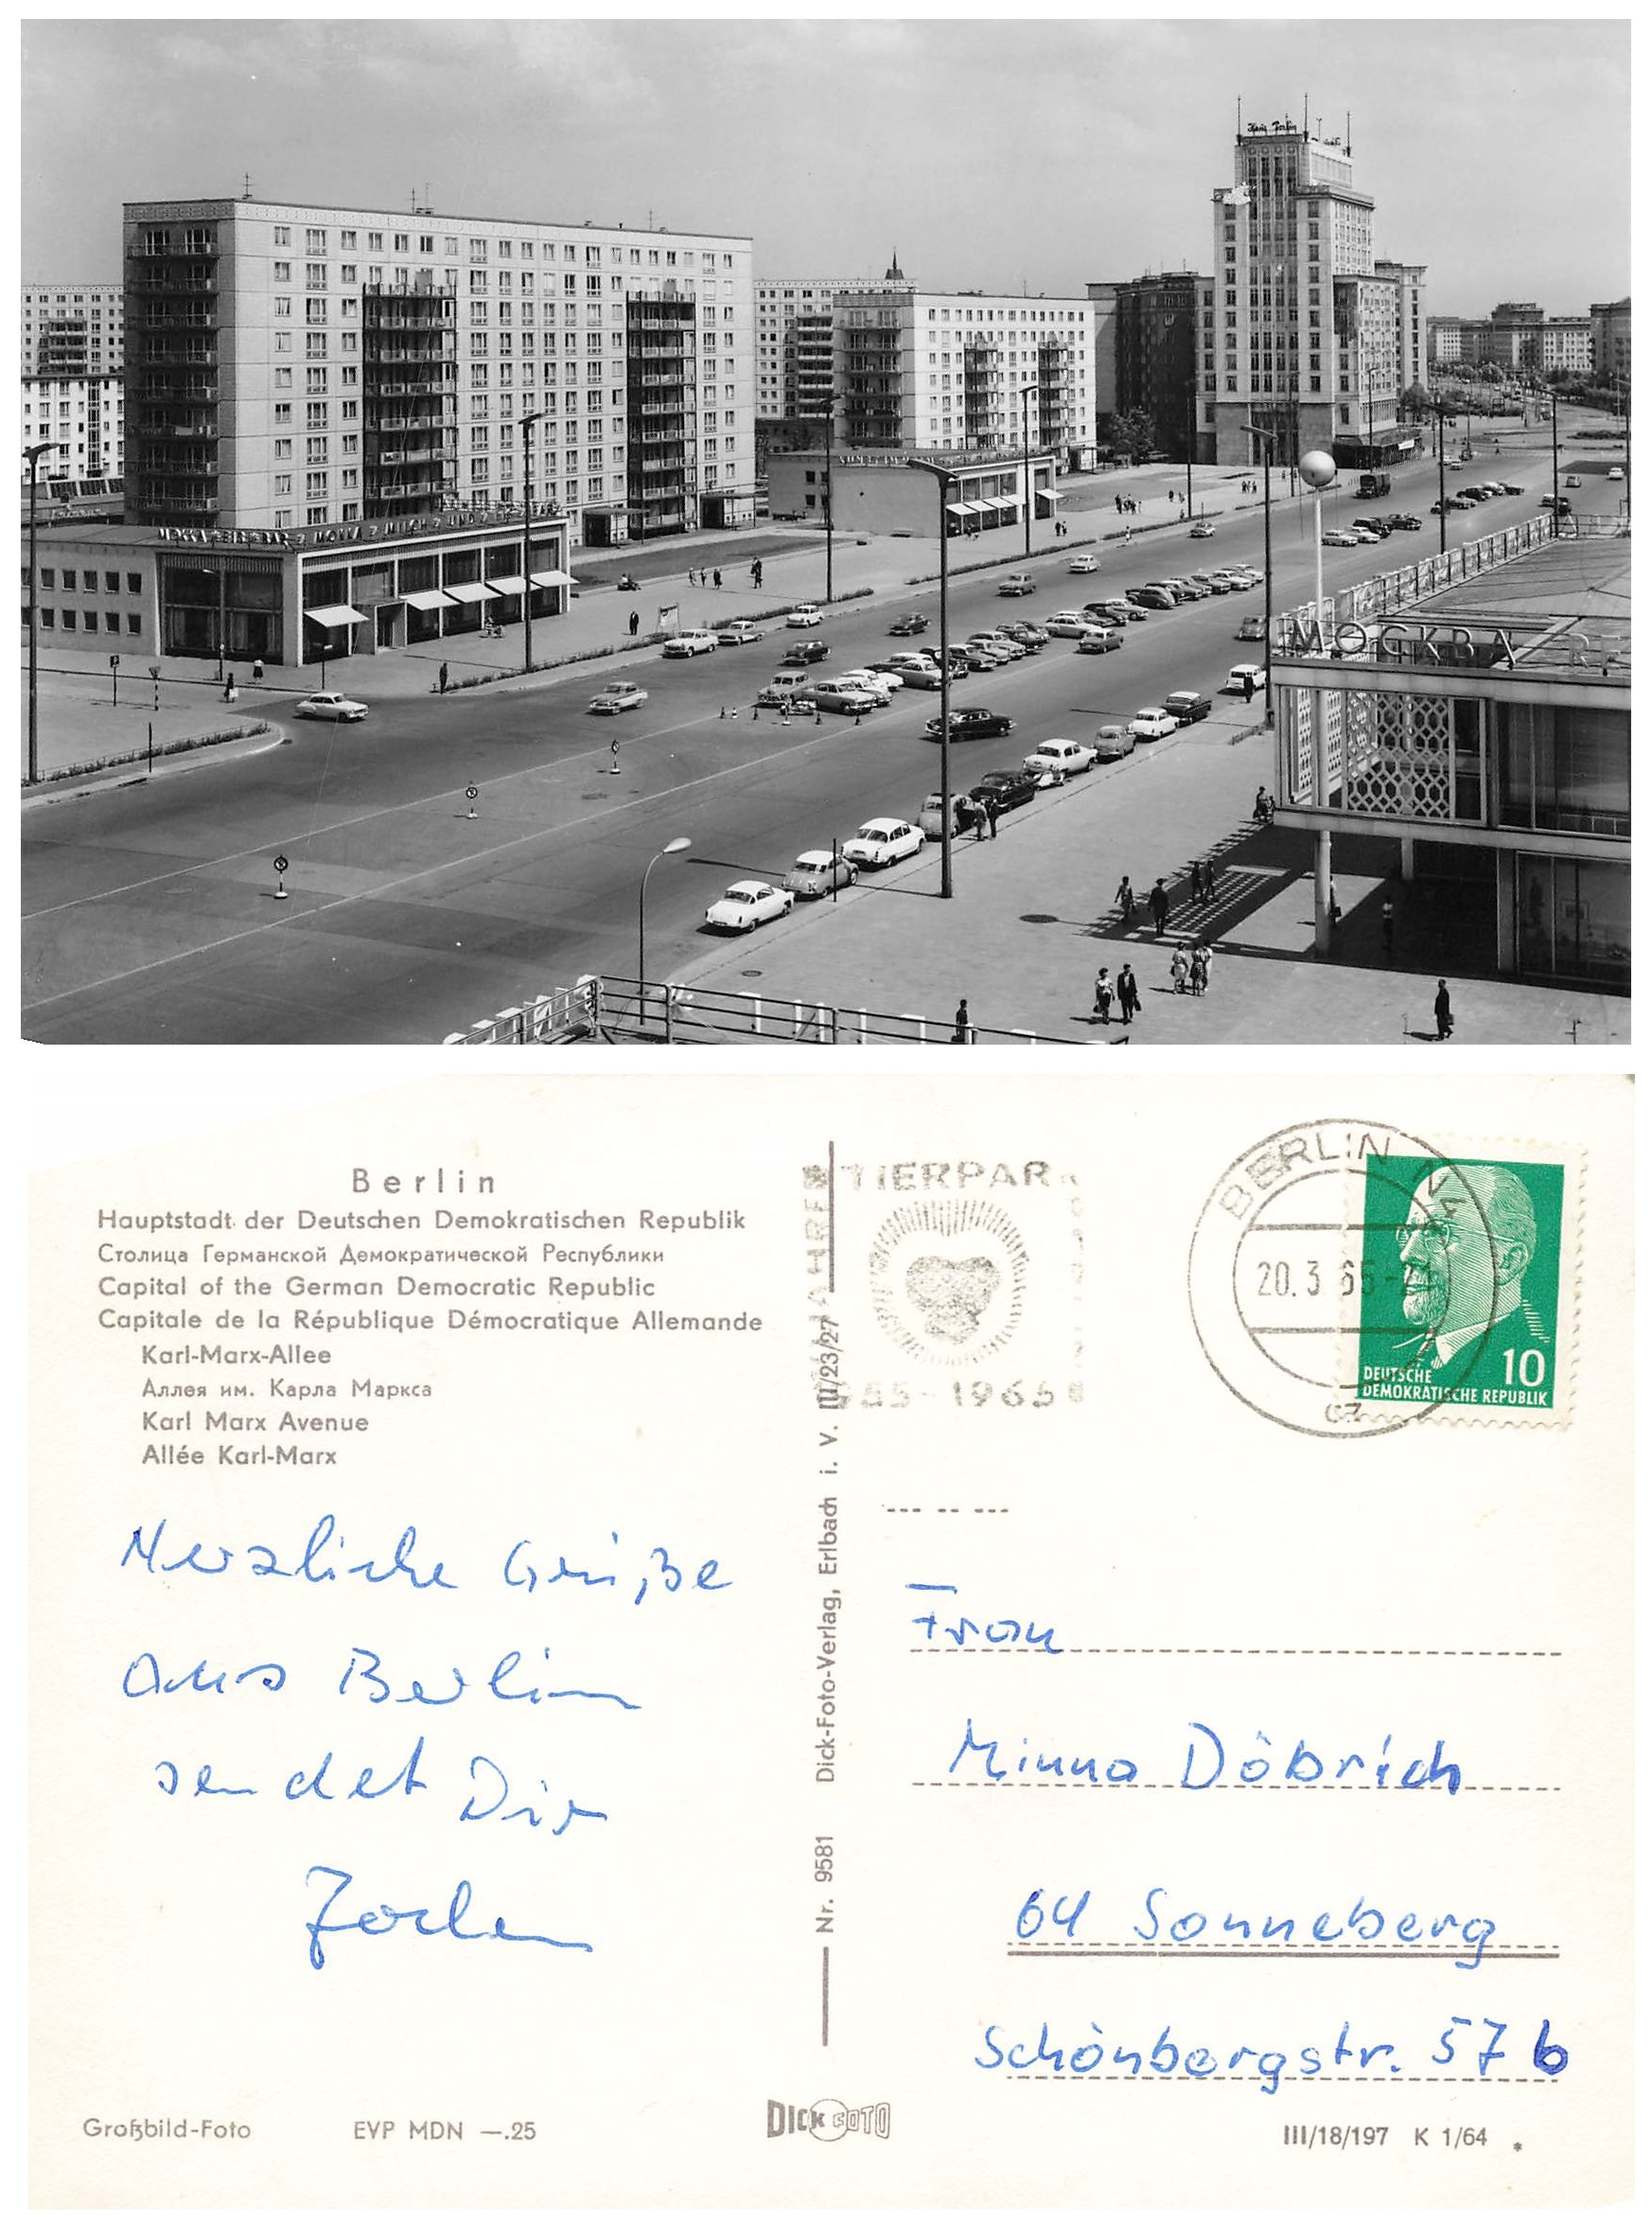 Haus Berlin
MOKKA-EIS-BAR MOKKA MILCH UND
МОСКВА RE
Berlin
Hauptstadt der Deutschen Demokratischen Republik
Столица Германской Демократической Республики
Capital of the German Democratic Republic
Capitale de la République Démocratique Allemande
Karl-Marx-Allee
Аллея им. Карла Маркса
Karl Marx Avenue
Allée Karl-Marx
Herzliche Grüße
aus Berlin
sendet Dir
Nr. 9581 Dick-Foto-Verlag, Erlbach i. V. III/23/27
TIERPARK
JAHRE
1955-1965
BERLIN
20.3.65
10
DEUTSCHE
DEMOKRATISCHE REPUBLIK
Frau
Minna Döbrich
64 Sonneberg
Schönbergstr. 57 b
Großbild-Foto EVP MDN —.25
DICK FOTO
III/18/197 K 1/64 *